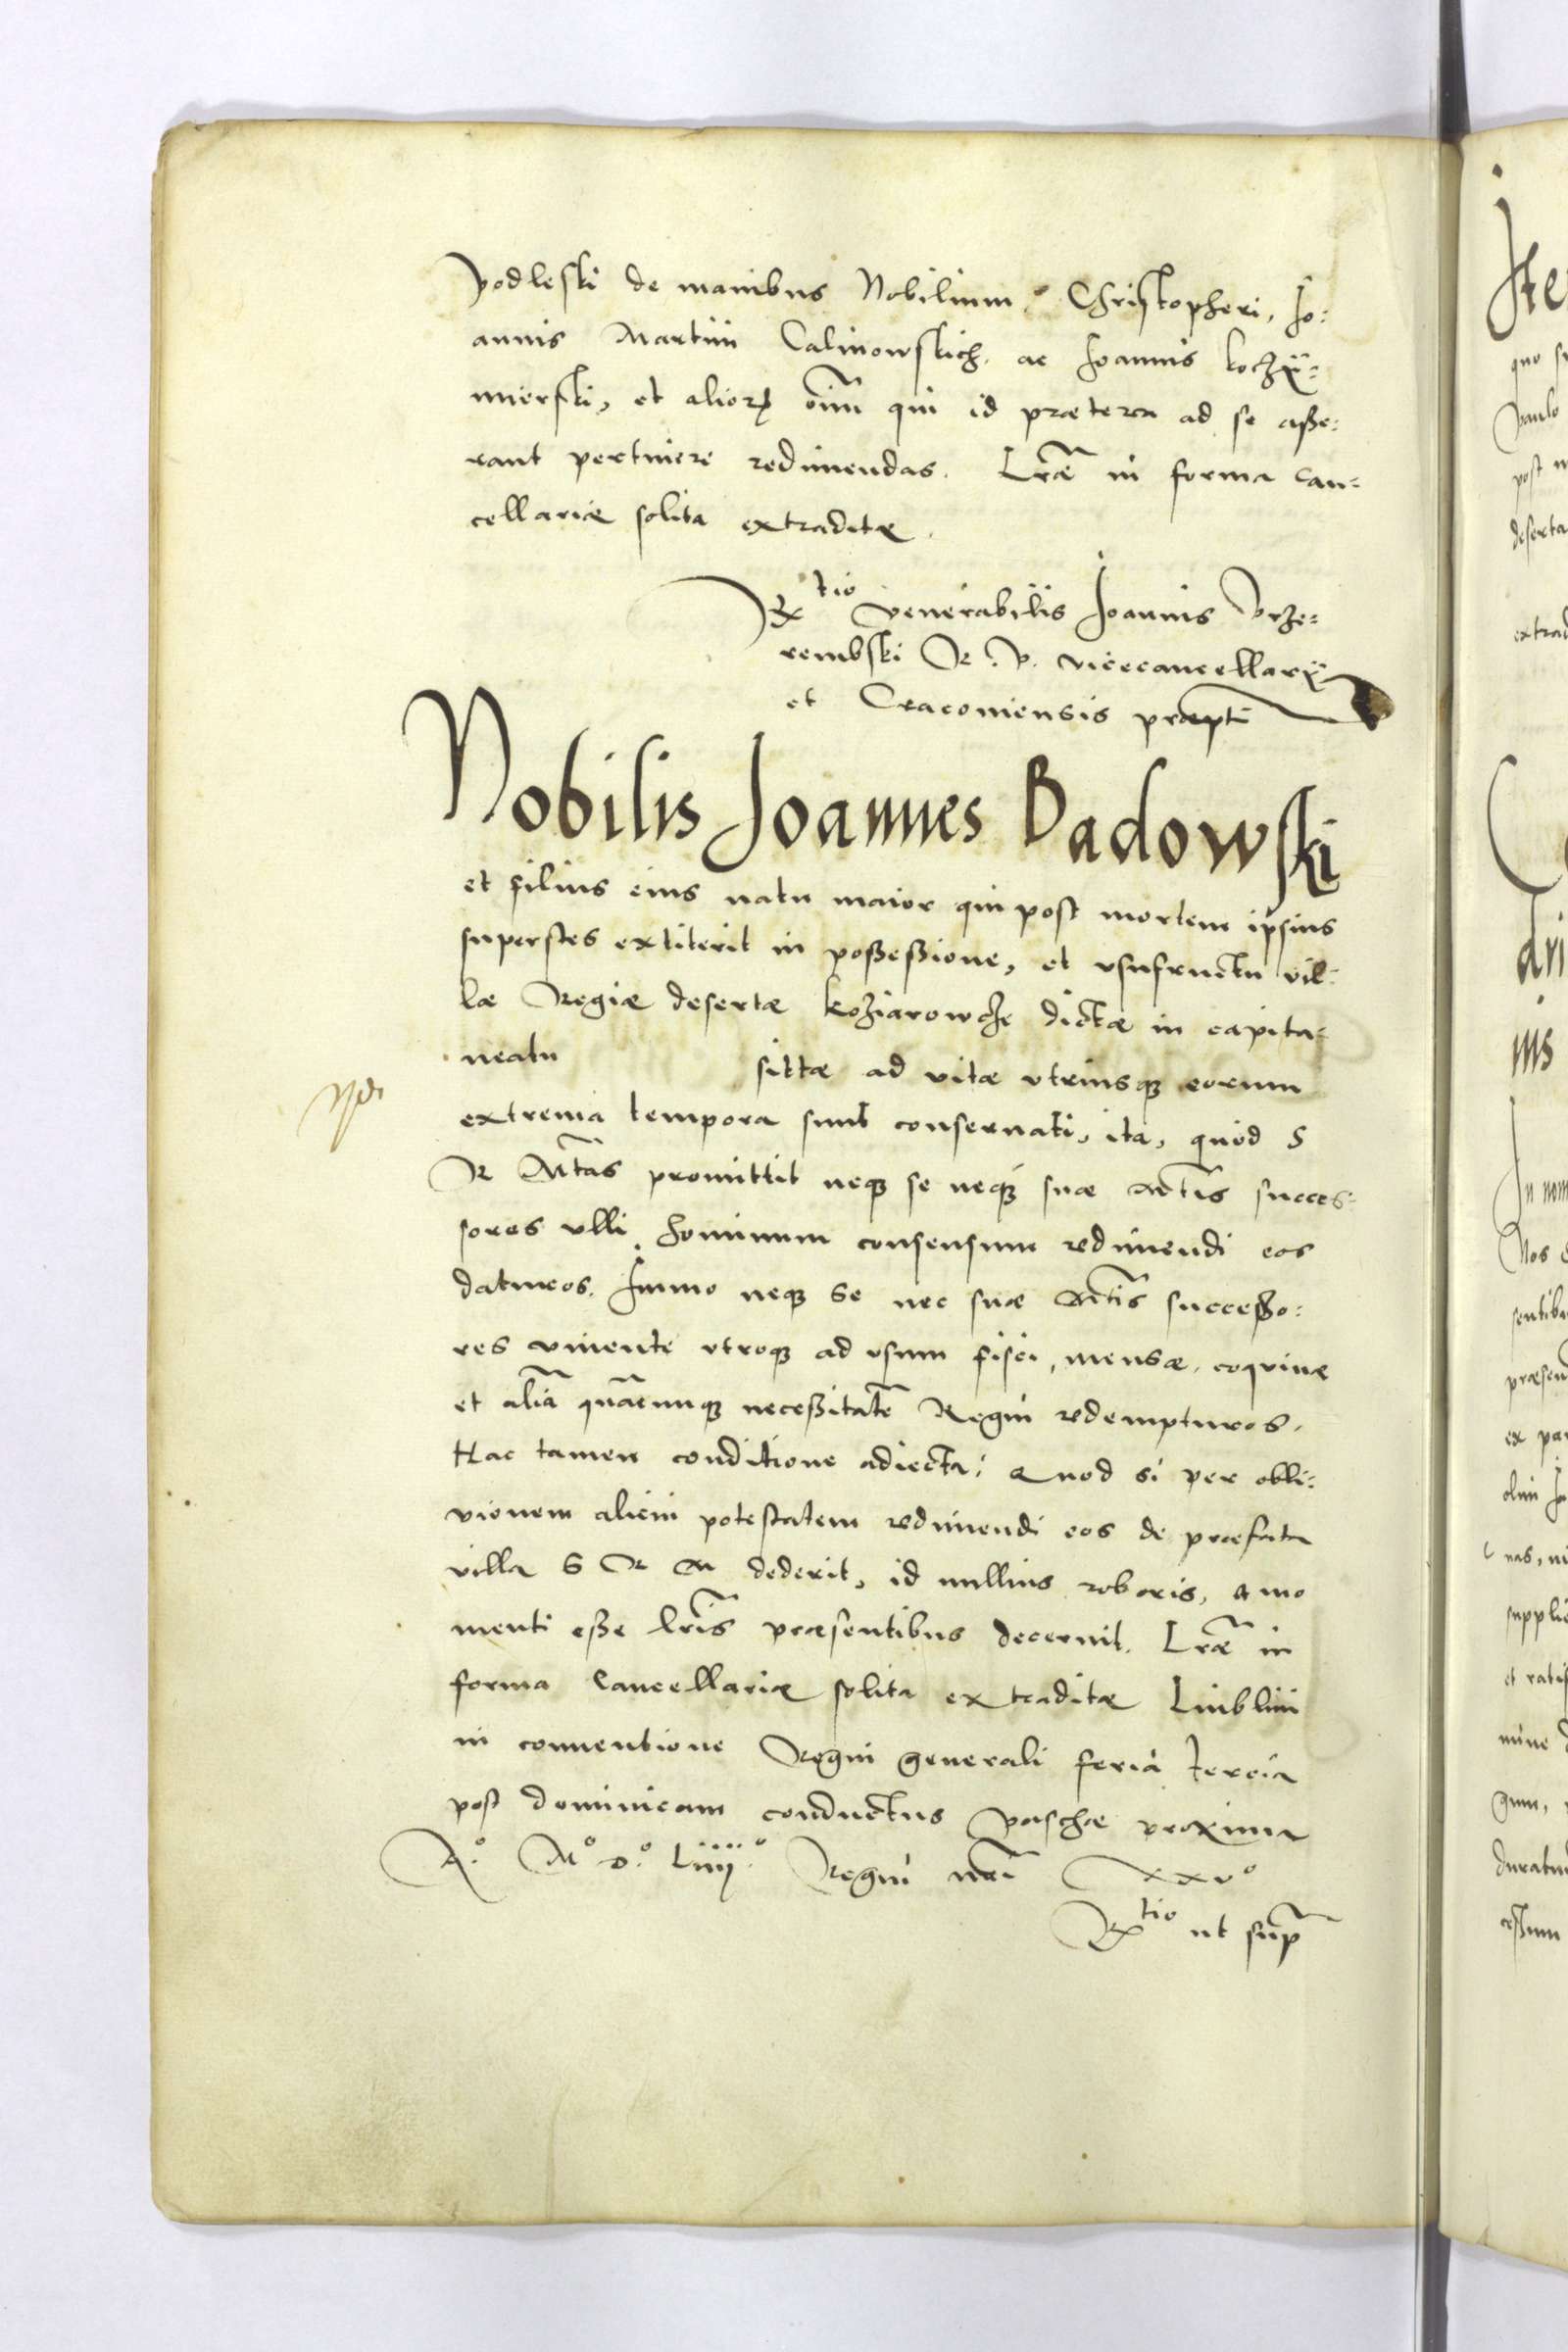 Podleski de manibus Nobilium Christopheri, Jo:
annis Martini Calinowskich. ac Joannis koczÿ:
mierski, et alioꝝ oĩm qui id præterea ad se asse:
rant pertinere redimendas. Lr̃æ in forma Can:
cellariæ solita extraditæ.
Rtio venerabilis Joannis Prze:
rembski R. P. vicecancellarÿ
et Cracoviensis præpti
Nobilis Joannes Badowski
et filius eius natu maior qui post mortem ipsius
superstes extiterit in possessione, et usufructu vil:
læ Regiæ desertæ koziarowcze dictæ in capita:
neatu sittæ ad vitæ utriusqꝫ eorum
extrema tempora sunt conservati, ita, quod S
R Mt̃as promittit neqꝫ se neqꝫ suæ Mt̃is succes:
sores ulli hominum consensum redimendi eos
daturos. Immo neqꝫ se nec suæ Mt̃is successo:
res vivente utroqꝫ ad usum fisci, mensæ, coquinæ
et aliã quãcunqꝫ necessitatẽ Regni redempturos.
Hac tamen conditione adiecta; Quod si per obli:
vionem alicui potestatem redimendi eos de præfata
villa S R M dederit, id nullius roboris, & mo
menti esse lr̃is præsentibus decernit. Lr̃æ in
forma Cancellariæ solita extraditæ Lublini
in conventione Regni generali feria tercia
post dominicam conductus Paschæ proxima
A.º Mº D.º Liiij.º Regni nr̃i xxvº
Rtio ut sup̃